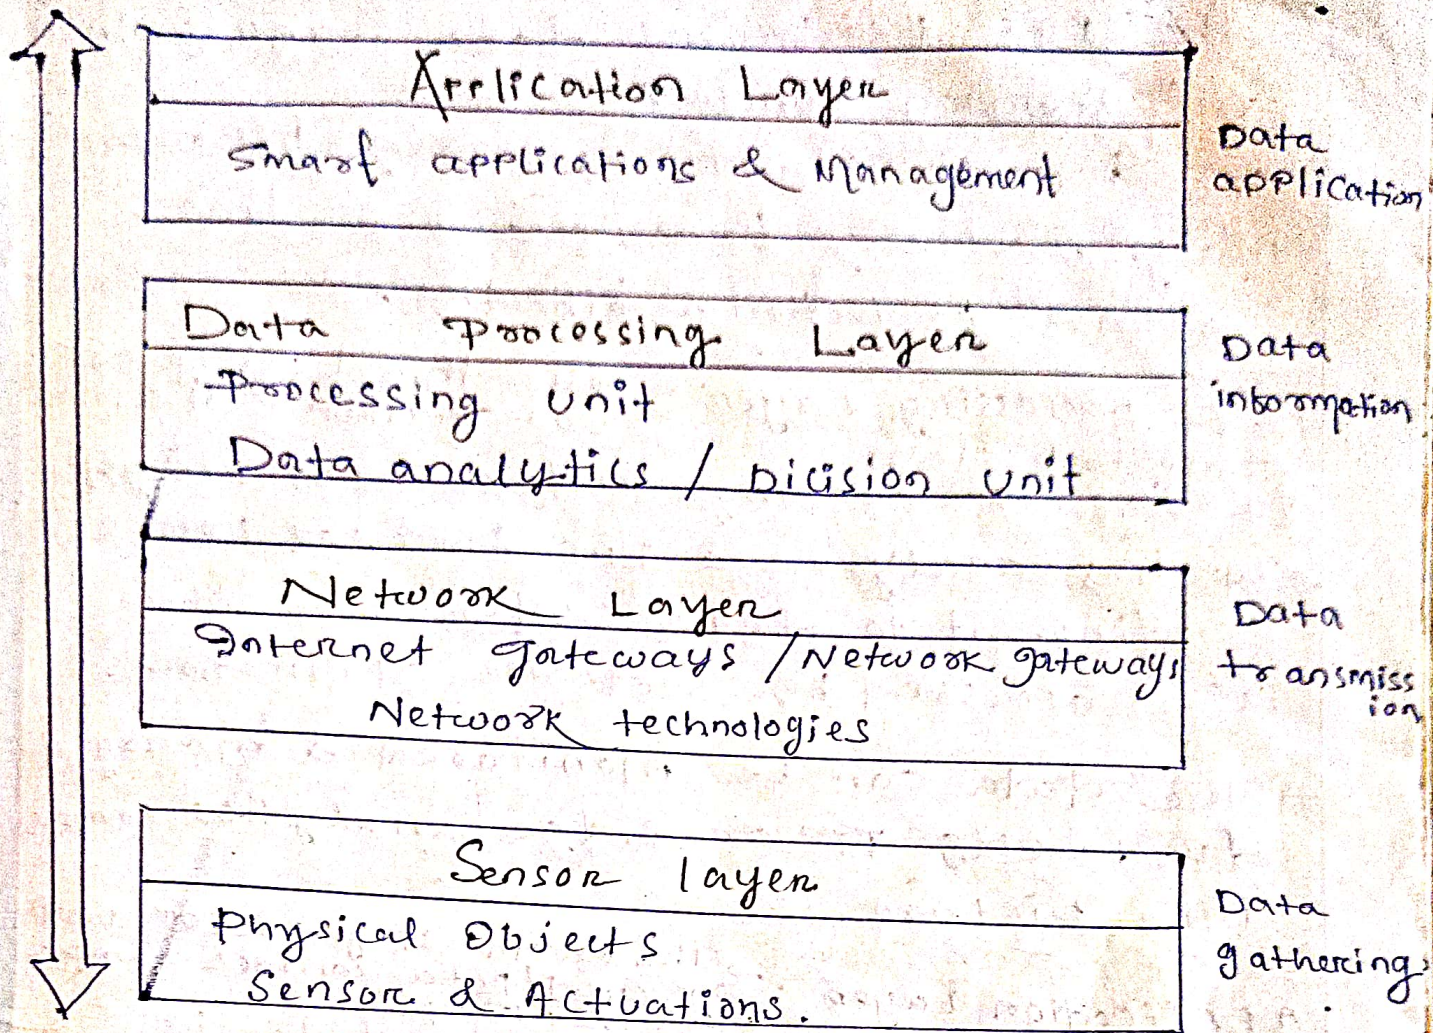 Application Layer
Smart applications & Management
Data
application
Data Processing Layer
Processing unit
Data analytics / Dicision unit
Data
information
Network Layer
Internet gateways / Network gateways
Network technologies
Data
transmiss
ion
Sensor layer
Physical Objects
Sensor & Actuations.
Data
gathering